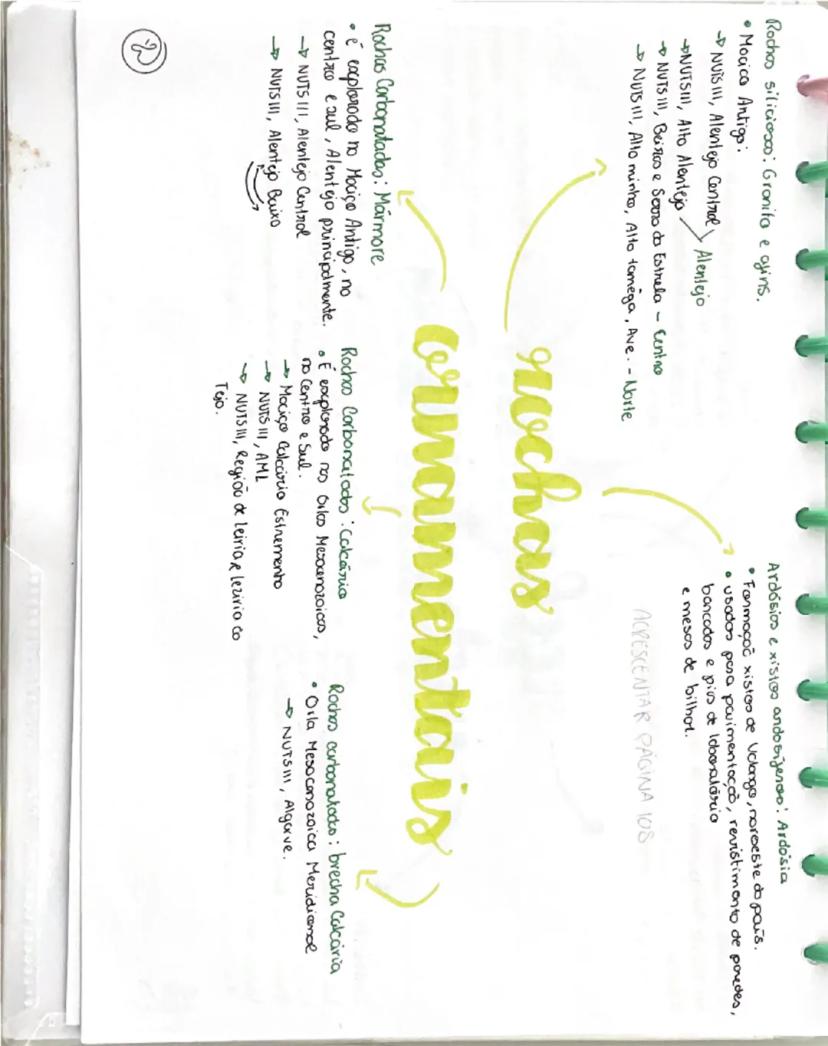 Rochas siliciosas: Granito e afins.
• Maciço Antigo:
→ NUTS III, Alentejo Central
→ NUTS III, Alto Alentejo
Alentejo
→ NUTS III, Beiras e Serra da Estrela - Centro
→ NUTS III, Alto minho, Alto tamêga, Ave. - Norte
Ardósias e xistos ardosíferos: Ardósia
• Formação xistos de Valongo, noroeste do país.
• usados para pavimentação, revistimento de paredes,
bancadas e pias de laboratório
e mesas de bilhar.
ACRESCENTAR PÁGINA 108
rochas
ornamentais
Rochas Carbonatadas: Mármore
• é explorado no Maciço Antigo, no
centro e sul, Alentejo principalmente.
→ NUTS III, Alentejo Central
→ NUTS III, Alentejo Baixo
Rochas Carbonatadas: Calcário
• É explorado nas Orlas Mesocenozoicas,
no Centro e Sul.
→ Maciço Calcário Estremenho
→ NUTS III, AML
→ NUTS III, Região de Leiria e Lezíria do
Tejo.
Rochas carbonatadas: brecha Calcária
• Orla Mesocenozoica Meridional
→ NUTS III, Algarve.
2